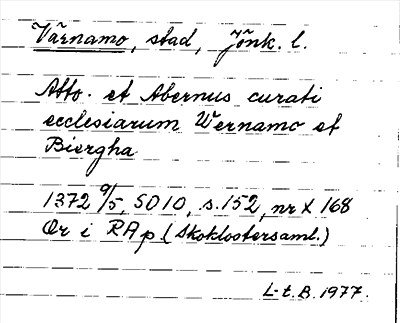 Värnamo, stad, Jönk. l.
Atto. et Abernus curati
ecclesiarum Wernamo et
Biergha
1372 9/5, SD 10, s. 152, nr X 168
Or i RAp (Skoklostersaml.)
L-t. B. 1977.